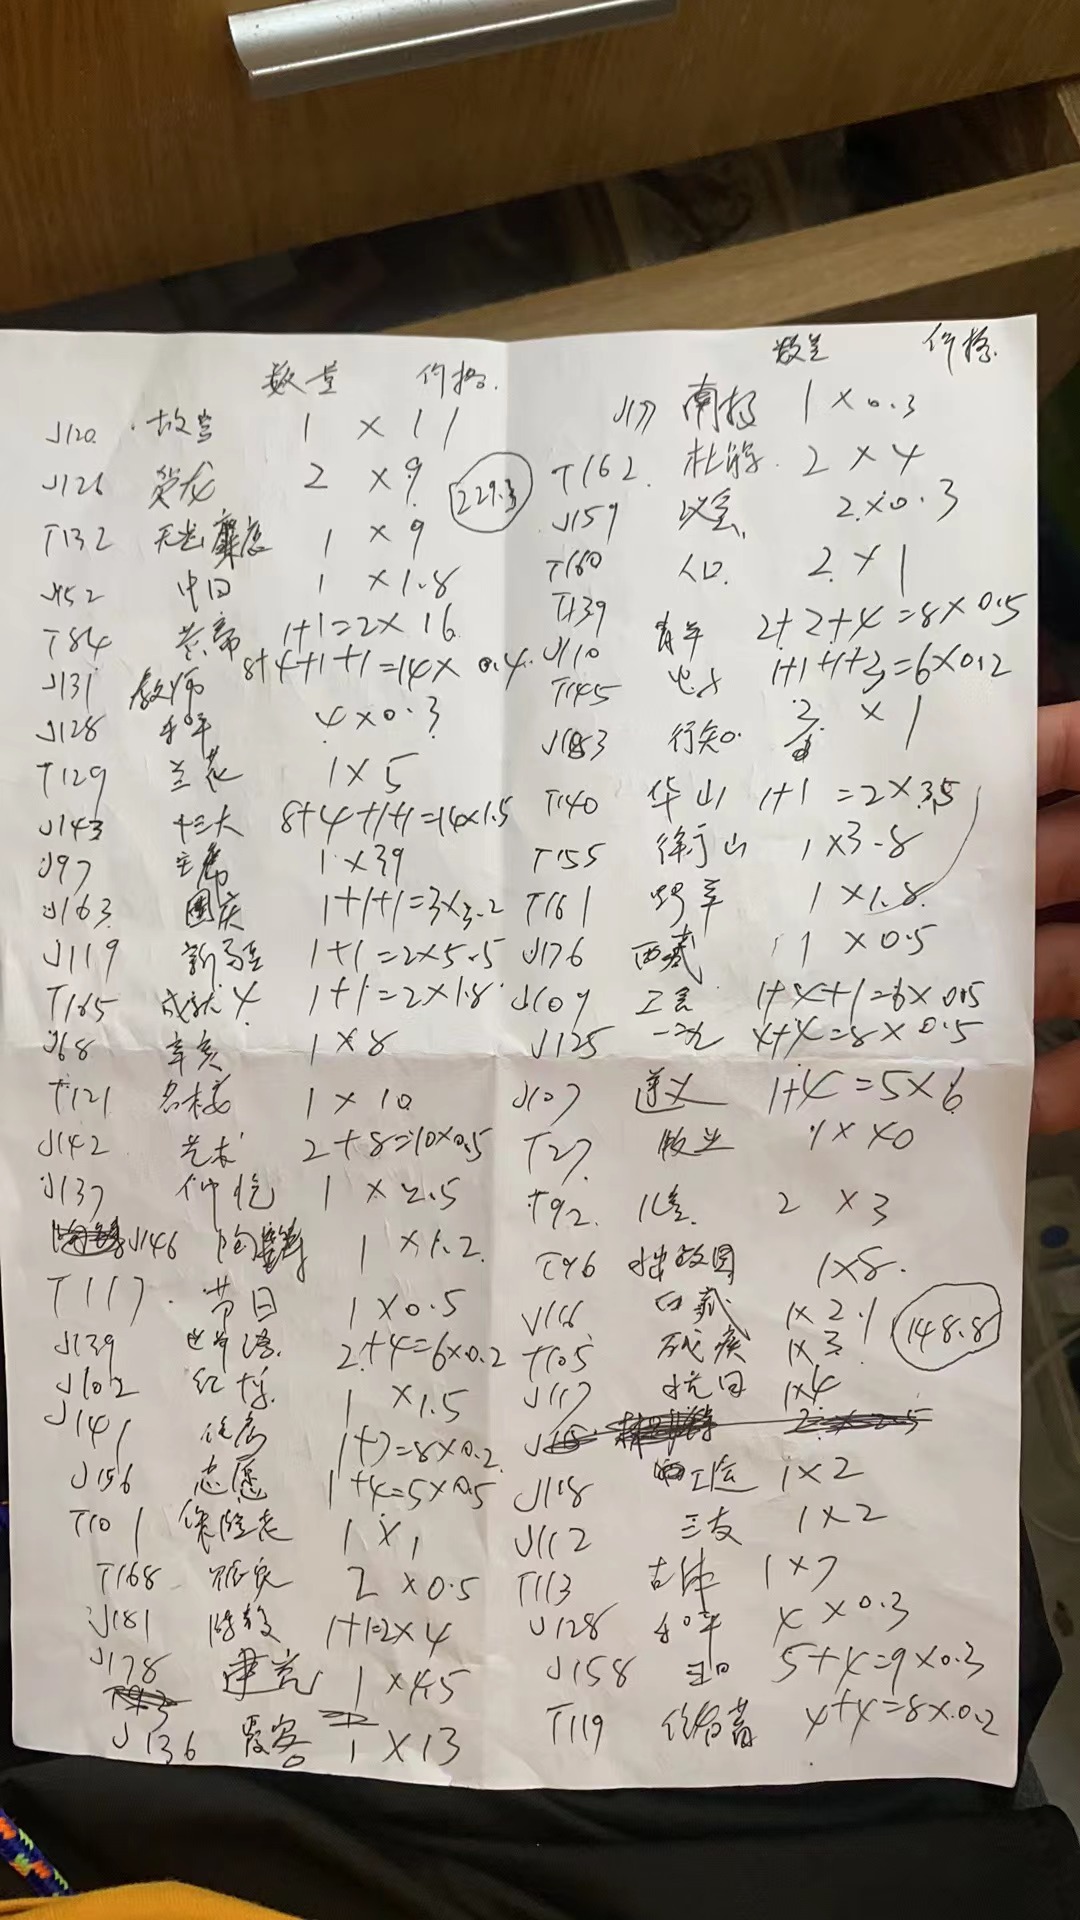 数量 价格.
J120. 故宫 1 × 11
J126 2 × 9
T132 1 × 9
J152 中日 1 × 1.8
T84 1+1=2× 16
J131 教师 8+4+1+1=14× 0.4
J128 和平 4×0.3
T129 兰花 1×5
J143 十三大 8+4+1+1=14×1.5
J97 主席 1×39
J163 国庆 1+1+1=3×3.2
J119 新马 1+1=2×5.5
T165 成就4 1+1=2×1.8
J68 辛亥 1×8
T121 名楼 1 × 10
J142 艺术 2+8=10×0.5
J137 仲恺 1 × 2.5
J146 陶铸 1 ×1.2
T117. 节日 1×0.5
J139 世界语. 2+4=6×0.2
J102 红楼 1 ×1.5
J141 1+7=8×0.2
J156 志愿 1+4=5×0.5
T101 保险 1×1
T168 2 ×0.5
J181 陈毅 1+1=2×4
J178 1 ×4.5
J136 霞客 1 ×13
229.3
数量 价格.
J177 南极 1 ×0.3
T162. 杜鹃 2 × 4
J159 议会 2×0.3
T160 人口. 2×1
T139
J110 青年 2+2+4=8×0.5
T145 1+1+1+3=6×0.2
J183 行知 2 ×1
T140 华山 1+1 =2×3.5
T155 衡山 1×3.8
T161 野羊 1×1.8
J176 西藏 1 ×0.5
J109 工会 1+4+1=6×0.5
J125 一二九 4+4=8×0.5
J107 遵义 1+4=5×6
T27. 牧业 1××0
T92. 儿童 2 ×3
T96 拙政园 1×8.
J116 西藏 1×2.1
T105 残疾 1×3
J117 抗日 1×4
148.8
J118 工运 1×2
J112 三支 1×2
T113 古体 1×7
J128 和平 4×0.3
J158 5+4=9×0.3
T119 储蓄 4+4=8×0.2